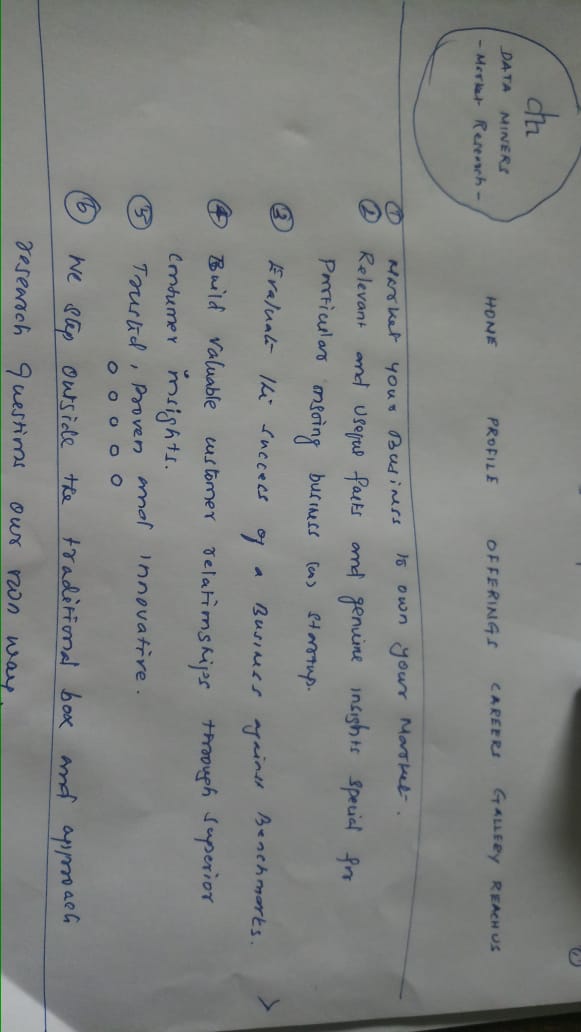 dm
DATA MINERS
- Market Research -
HOME PROFILE OFFERINGS CAREERS GALLERY REACH US
① Market your Business to own your Market.
② Relevant and useful facts and genuine insights special for
Particular ongoing business (or) startup.
③ Evaluate the success of a Business against Benchmarks.
④ Build valuable customer relationships through superior
consumer insights.
⑤ Trusted, proven and innovative.
⑥ We step outside the traditional box and approach
research questions our own way.